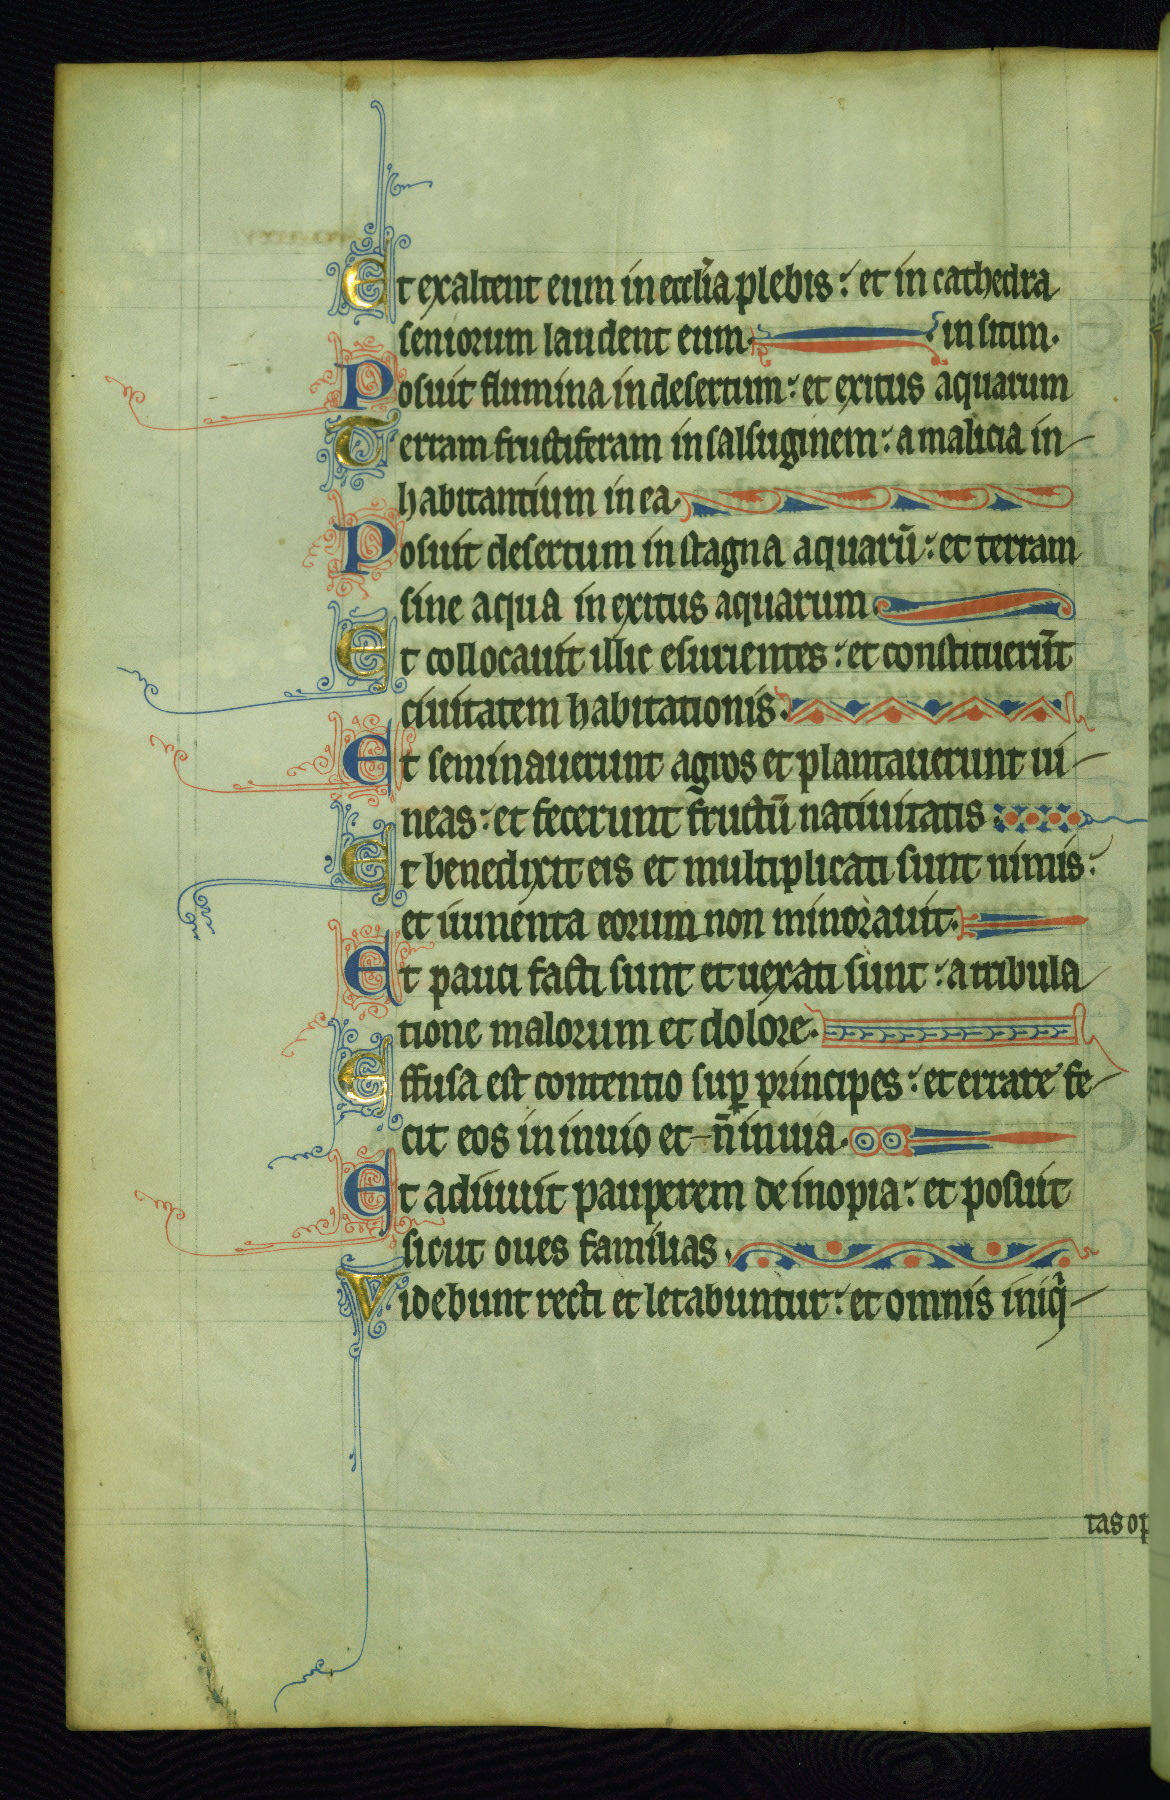 Et exaltent eum in eccl̄ia plebis: et in cathedra
seniorum laudent eum. in sitim.
Posuit flumina in desertum: et exitus aquarum
Terram fructiferam in salsuginem: a malicia in-
habitantium in ea.
Posuit desertum in stagna aquarū: et terram
sine aqua in exitus aquarum.
Et collocauit illic esurientes: et constituerūt
ciuitatem habitationis.
Et seminauerunt agros et plantauerunt ui-
neas: et fecerunt fructū natiuitatis.
Et benedixit eis et multiplicati sunt nimis:
et iumenta eorum non minorauit.
Et pauci facti sunt et uexati sunt: a tribula
tione malorum et dolore.
Effusa est contentio suꝑ principes: et errare fe-
cit eos in inuio et n̄ in uia.
Et adiuuit pauperem de inopia: et posuit
sicut oues familias.
Videbunt recti et letabuntur: et omnis iniq̄-
tas op